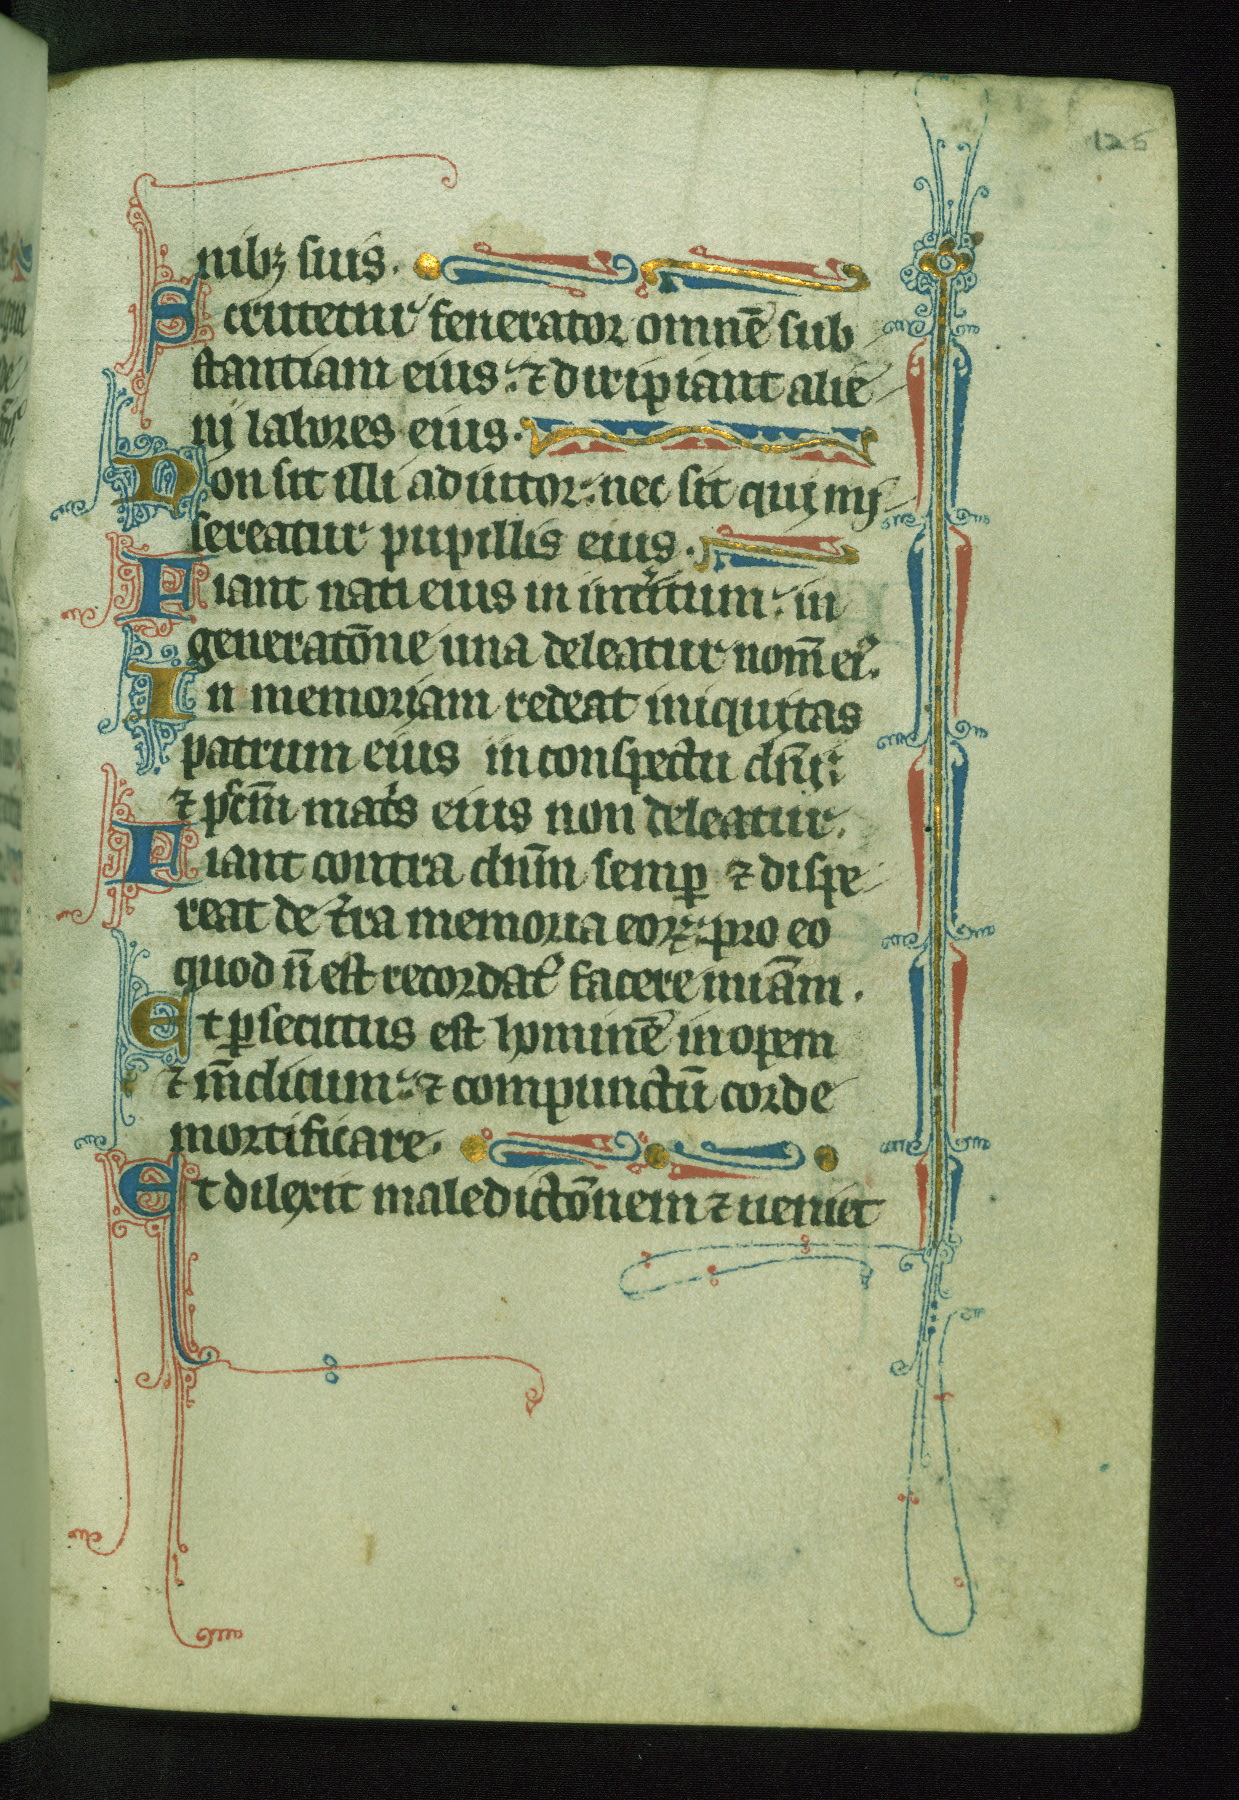 126
nibꝫ suis.
Scrutetur fenerator omnē sub
stantiam eius: ⁊ diripiant alie
nj labores eius.
Non sit illi adiutor: nec sit qui mj
sereatur pupillis eius.
Fiant nati eius in intͥitum: in
generatōne una deleatur nom̄ eiꝰ.
In memoriam redeat iniquitas
patrum eius in conspectu dn̄i:
⁊ pc̄m matͥs eius non deleatur.
Fiant contra dn̄m semꝑ ⁊ dispe
reat de t̄ra memoria eoꝝ: pro eo
quod n̄ est recordatꝰ facere mīam.
Et ꝑsecutus est hominē inopem
⁊ m̄dicum: ⁊ compunctū corde
mortificare.
Et dilexit maledictōnem ⁊ ueniet